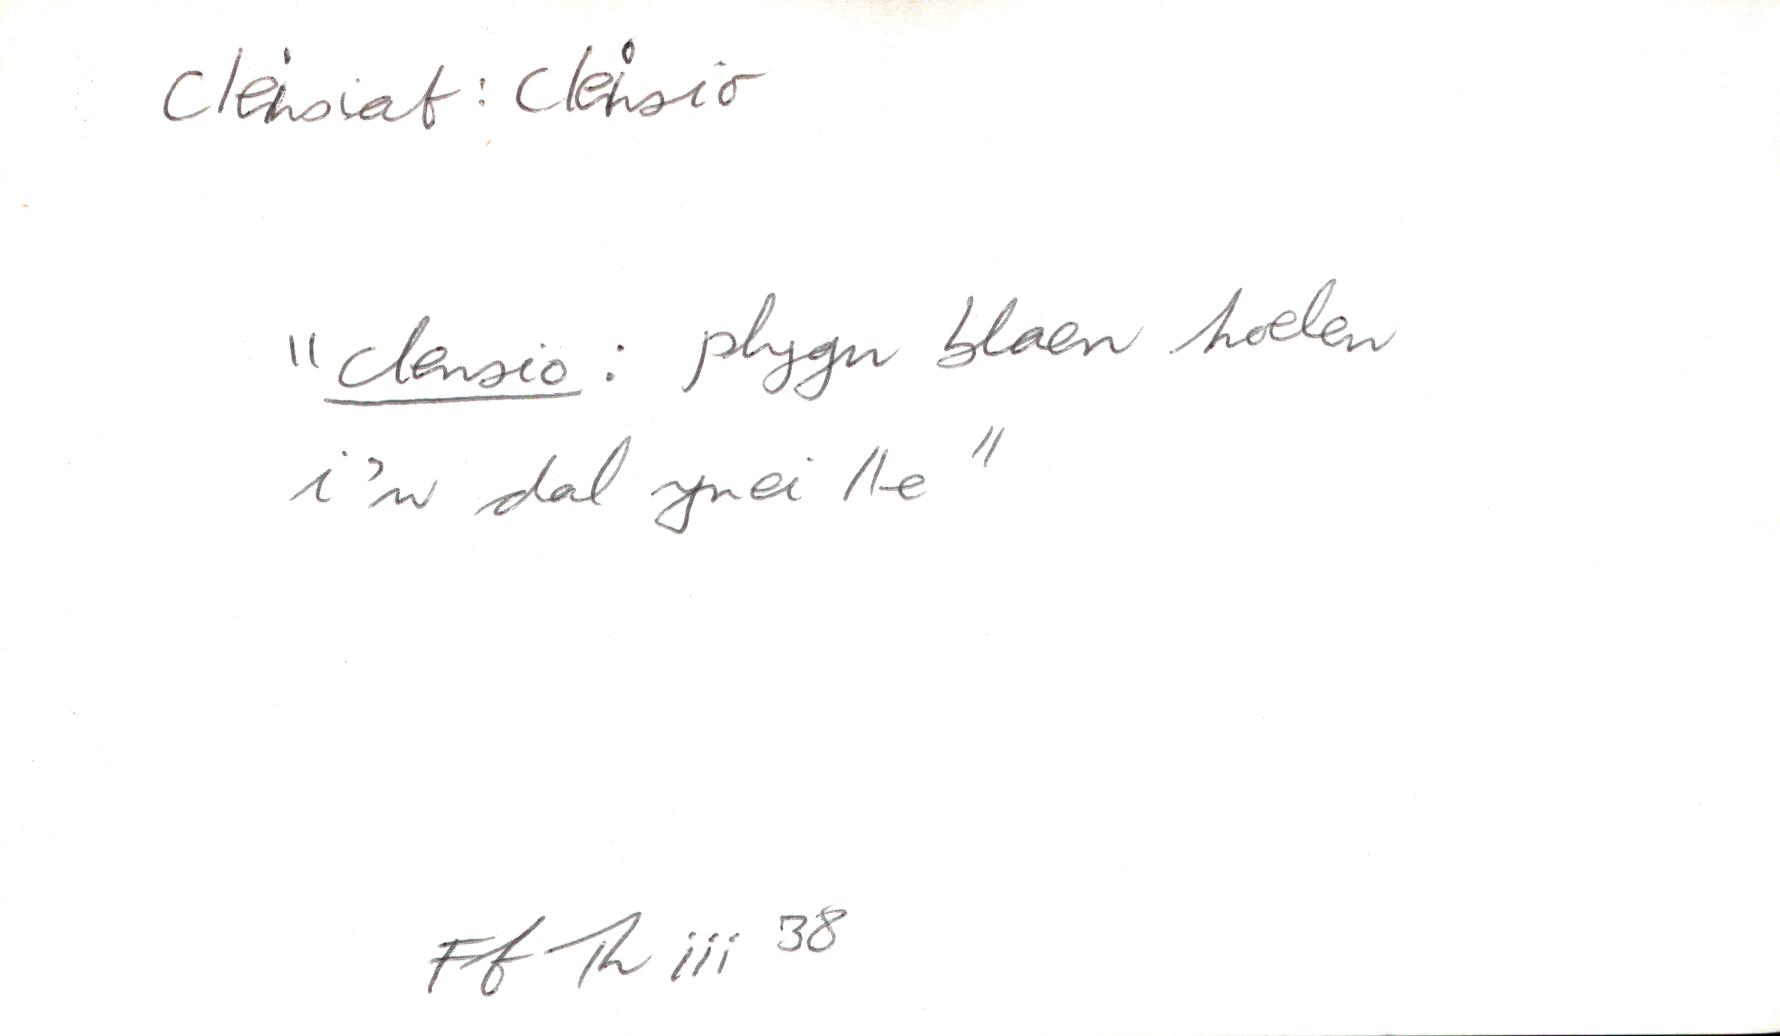 clensiaf: clensio
"clensio: plygu blaen hoelen
i'w dal yn ei lle"
Ff Th iii 38